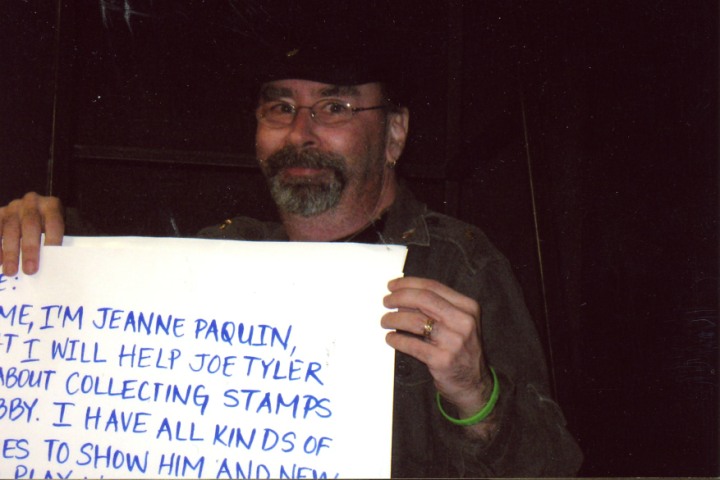 E:
ME, I'M JEANNE PAQUIN,
T I WILL HELP JOE TYLER
ABOUT COLLECTING STAMPS
BBY. I HAVE ALL KINDS OF
ES TO SHOW HIM AND NEW
PLAY